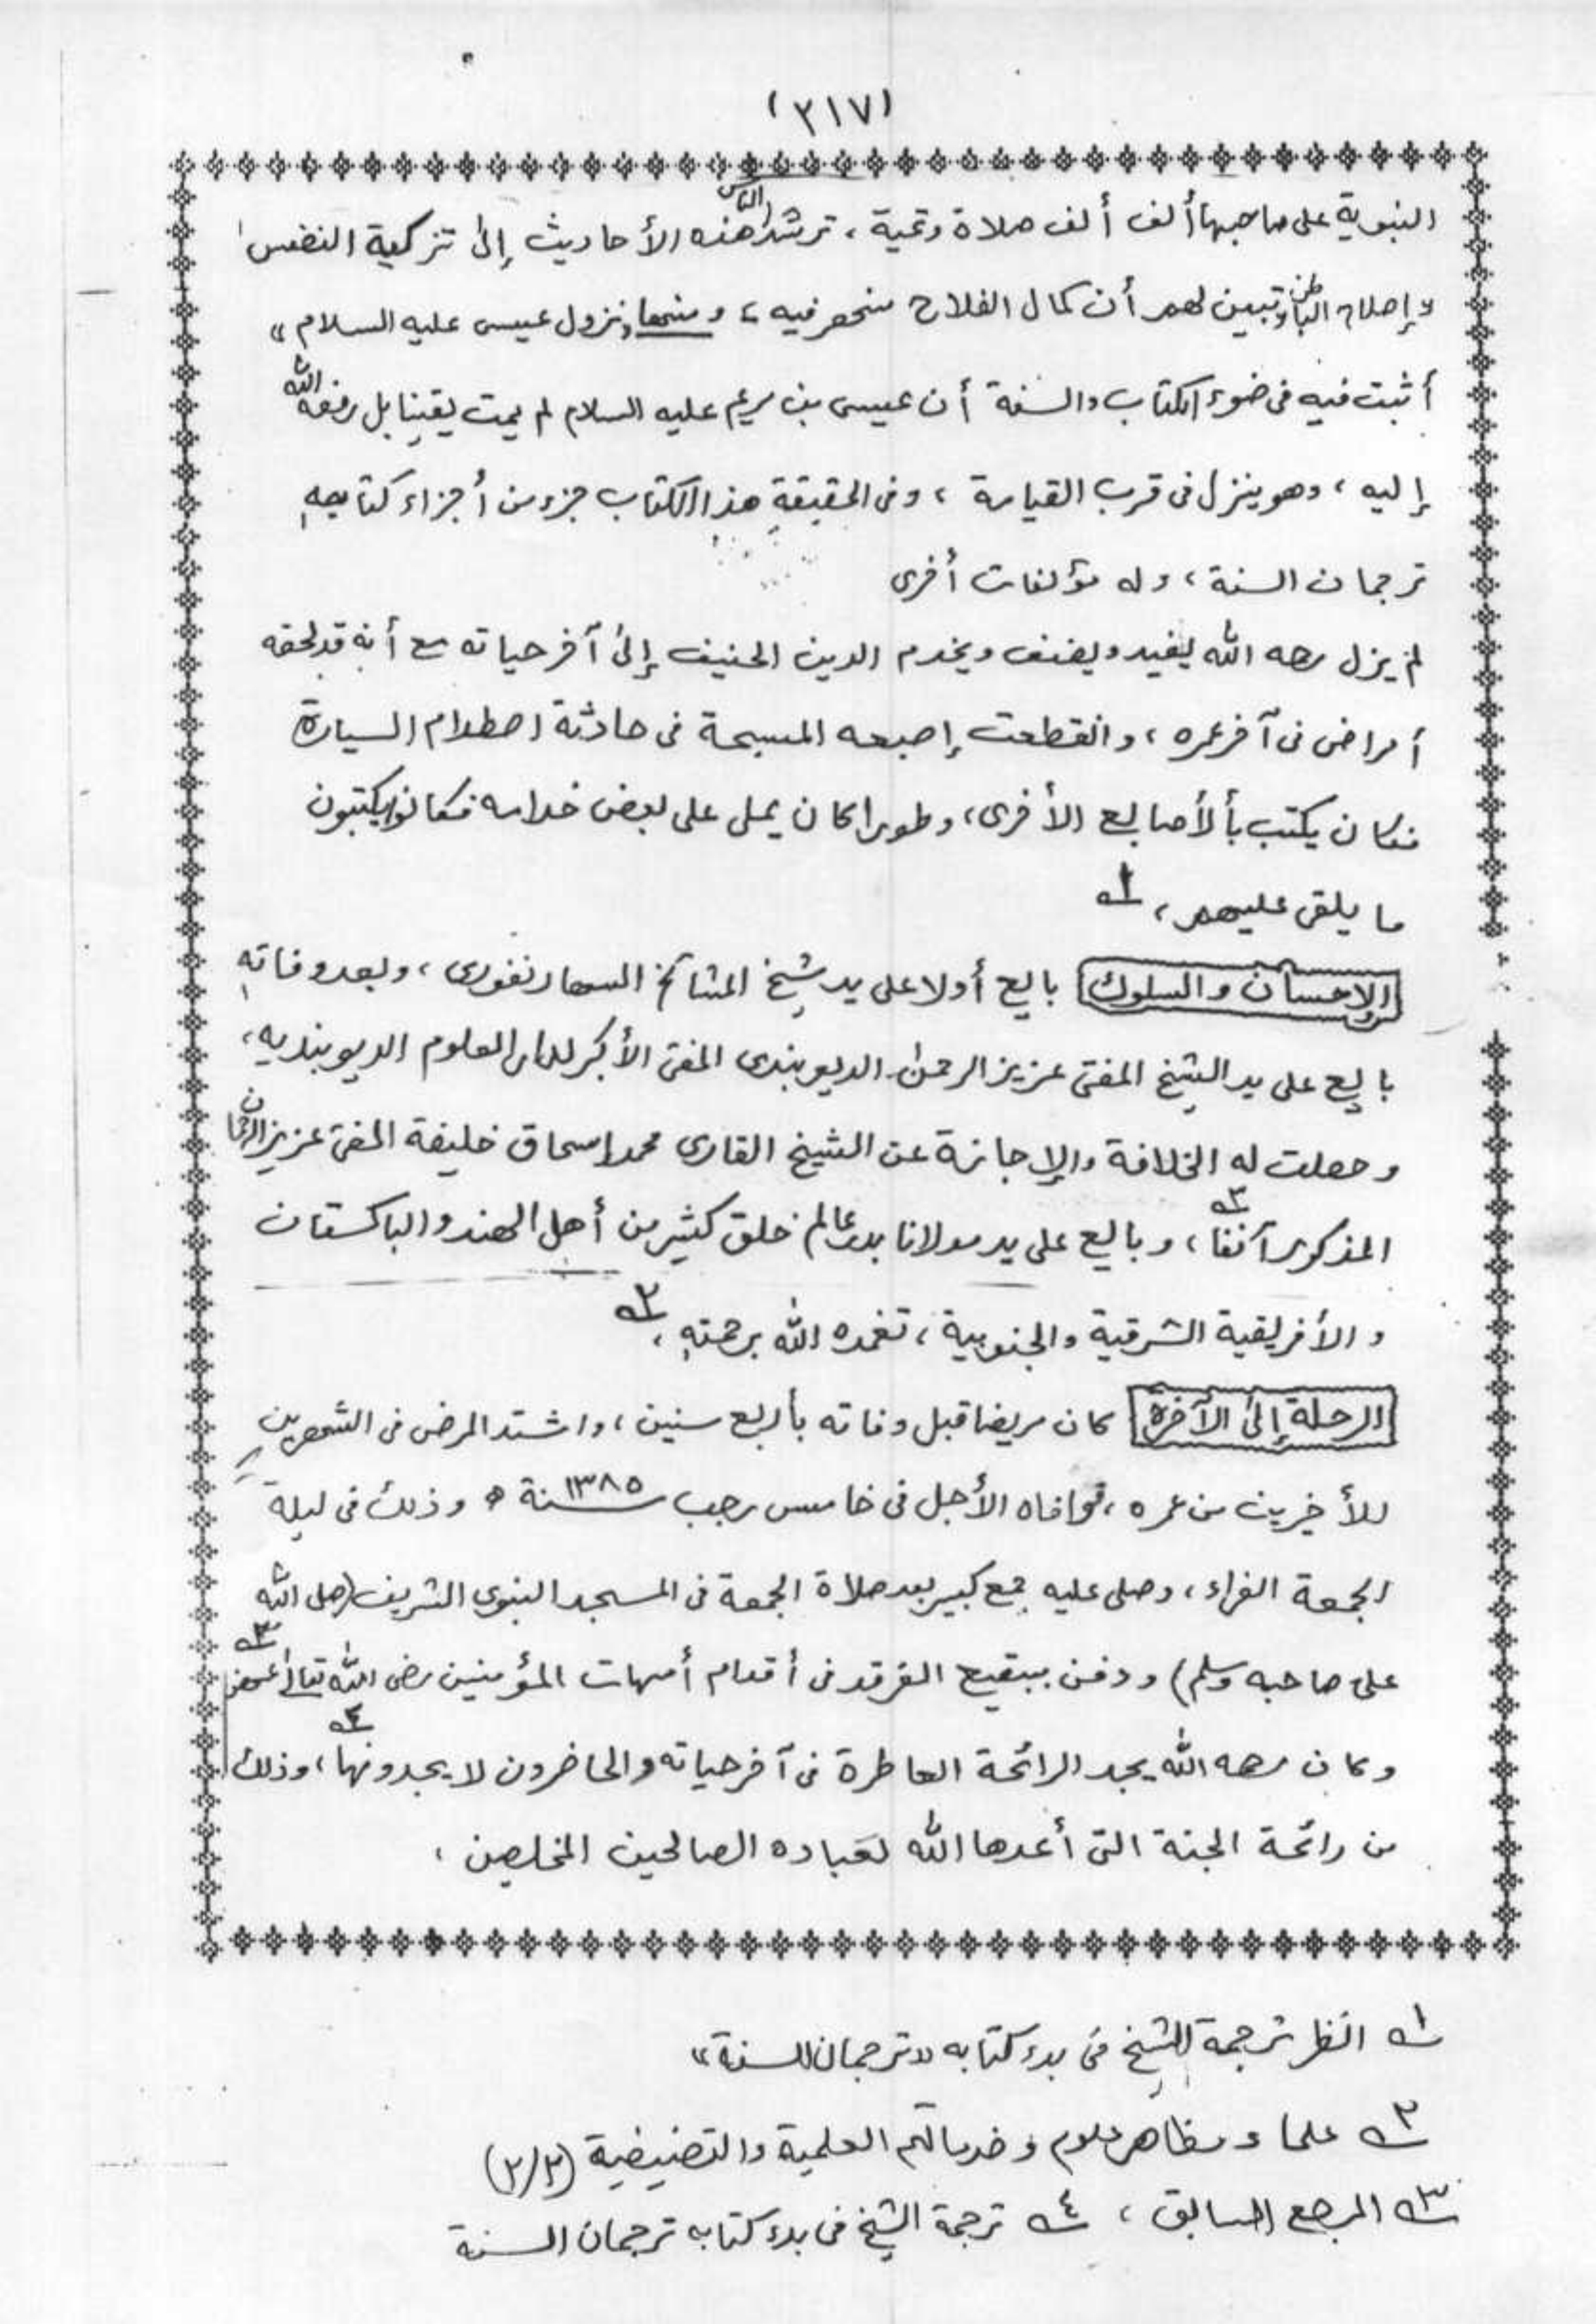 (٣١٧)
النبوية على صاحبها ألف ألف صلاة وتحية، ترشد الناس هذه الأحاديث إلى تزكية النفس
وإصلاح الباطن وتبين لهم أن كمال الفلاح منحصر فيه، ومنها "نزول عيسى عليه السلام"
أثبت فيه في ضوء الكتاب والسنة أن عيسى بن مريم عليه السلام لم يمت يقينا بل رفعه الله
إليه، وهو ينزل في قرب القيامة، وفي الحقيقة هذا الكتاب جزء من أجزاء كتابه
ترجمان السنة، وله مؤلفات أخرى
لم يزل رحمه الله يفيد ويصنف ويخدم الدين الحنيف إلى آخر حياته مع أنه قد لحقه
أمراض في آخر عمره، وانقطعت إصبعه المسبحة في حادثة اصطدام السيارة
فكان يكتب بألأصابع الأخرى، وطورا كان يملى على بعض خدامه فكانوا يكتبون
ما يلقى عليهم، ١ــه
الإحسان والسلوك بايع أولا على يد شيخ المشائخ السهارنفورى، وبعد وفاته
بايع على يد الشيخ المفتى عزيز الرحمن الديوبندى المفتى الأكبر لدار العلوم الديوبنديه،
وحصلت له الخلافة والإجازة عن الشيخ القارى محمد إسحاق خليفة المفتى عزيز الرحمان
المذكور آنفا، ٢ــه وبايع على يد مولانا بدر عالم خلق كثير من أهل الهند والباكستان
والأفريقية الشرقية والجنوبية، تغمده الله برحمته، ٢ــه
الرحلة إلى الآخرة كان مريضا قبل وفاته بأربع سنين، واشتد المرض في الشهرين
للأخيرين من عمره، فوافاه الأجل في خامس رجب سنة ١٣٨٥ ه وذلك في ليلة
الجمعة الغراء، وصلى عليه جمع كبير بعد صلاة الجمعة في المسجد النبوى الشريف (صلى الله
على صاحبه وسلم) ودفن ببقيع الغرقد في أقدام أمهات المؤمنين رضى الله تعالى عنهن ٣ــه
وكان رحمه الله يجد الرائحة العاطرة في آخر حياته والحاضرون لا يجدونها، ٤ــه وذلك
من رائحة الجنة التى أعدها الله لعباده الصالحين المخلصين،
١ــه انظر ترجمة الشيخ في بدء كتابه "ترجمان السنة"
٢ــه علماء مظاهر علوم وخدماتهم العلمية والتصنيفية (٢/٣)
٣ــه المرجع السابق، ٤ــه ترجمة الشيخ في بدء كتابه ترجمان السنة